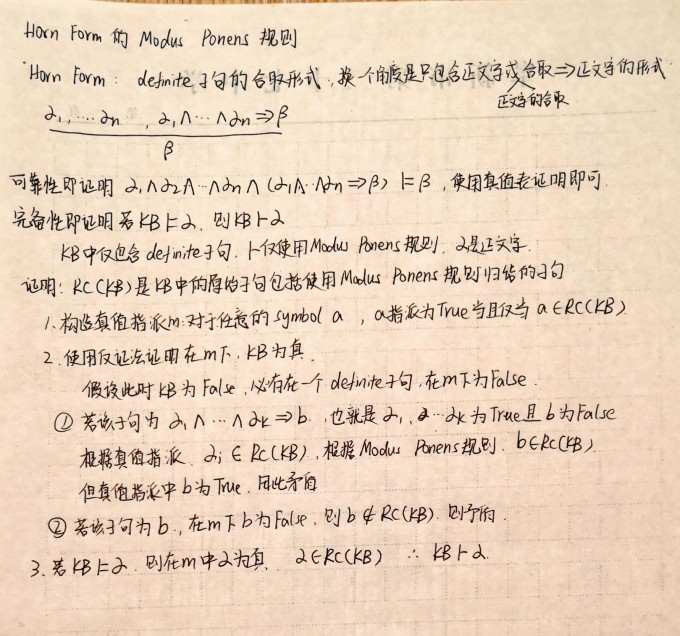 Horn Form 的 Modus Ponens 规则
Horn Form : definite子句的合取形式，换一个角度是只包含正文字或合取⇒正文字的形式
正文字的合取
α1, .... αn , α1∧...∧αn⇒β
β
可靠性即证明 α1∧α2∧...∧αn∧(α1∧..∧αn⇒β) ⊨β，使用真值表证明即可.
完备性即证明若KB⊨α，则KB⊢α
KB中仅包含definite子句，⊢仅使用Modus Ponens规则，α是正文字.
证明: RC(KB)是KB中的原始子句包括使用Modus Ponens规则归结的子句
1. 构造真值指派m:对于任意的symbol a ，a指派为True当且仅当 a∈RC(KB)
2. 使用反证法证明在m下，KB为真.
假设此时KB为False，必存在一个definite子句，在m下为False.
① 若该子句为 α1∧...∧αk⇒b. 也就是α1, ...αk为True且b为False
根据真值指派，αi∈RC(KB)，根据Modus Ponens规则，b∈RC(KB)
但真值指派中b为True，因此矛盾
② 若该子句为b.，在m下b为False，则b∉RC(KB). 则矛盾.
3. 若KB⊨α，则在m中α为真，α∈RC(KB) ∴ KB⊢α.